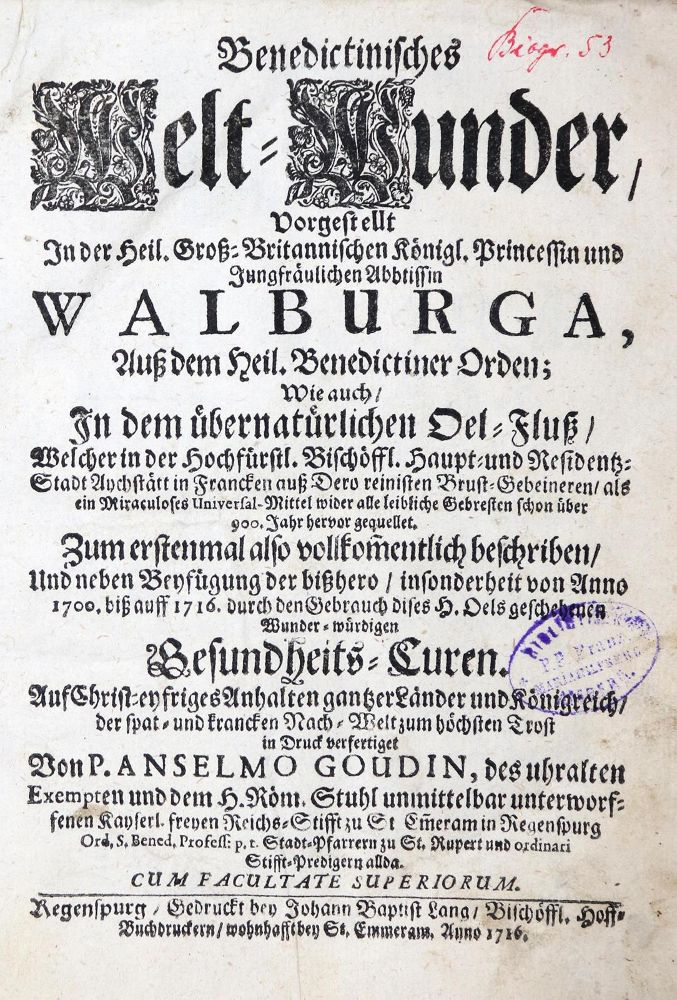 Biogr. 53
Benedictinisches
Welt-Wunder,/
Vorgestellt
In der Heil. Groß-Britannischen Königl. Princessin und
Jungfräulichen Abbtissin
WALBURGA,
Auß dem Heil. Benedictiner Orden;
Wie auch/
In dem übernatürlichen Oel-Fluß/
Welcher in der Hochfürstl. Bischöffl. Haupt-und Residentz-
Stadt Aychstätt in Francken auß Dero reinisten Brust-Gebeineren/ als
ein Miraculoses Universal-Mittel wider alle leibliche Gebresten schon über
900. Jahr hervor gequellet.
Zum erstenmal also vollkom̃entlich beschriben/
Und neben Beyfügung der bißhero/ insonderheit von Anno
1700. biß auff 1716. durch den Gebrauch dises H. Oels geschehenen
Wunder-würdigen
Gesundheits-Curen.
Auf Christ-eyfriges Anhalten gantzer Länder und Königreich/
der spat-und krancken Nach-Welt zum höchsten Trost
in Druck verfertiget
Von P. ANSELMO GOUDIN, des uhralten
Exempten und dem H. Röm. Stuhl unmittelbar unterworf-
fenen Kayserl. freyen Reichs-Stifft zu St Em̃eram in Regenspurg
Ord. S. Bened. Profess: p. t. Stadt-Pfarrern zu St. Rupert und ordinari
Stifft-Predigern allda.
CUM FACULTATE SUPERIORUM.
Regenspurg/ Gedruckt bey Johann Baptist Lang/ Bischöffl. Hoff-
Buchdruckern/ wohnhafft bey St. Emmeram. Anno 1716.